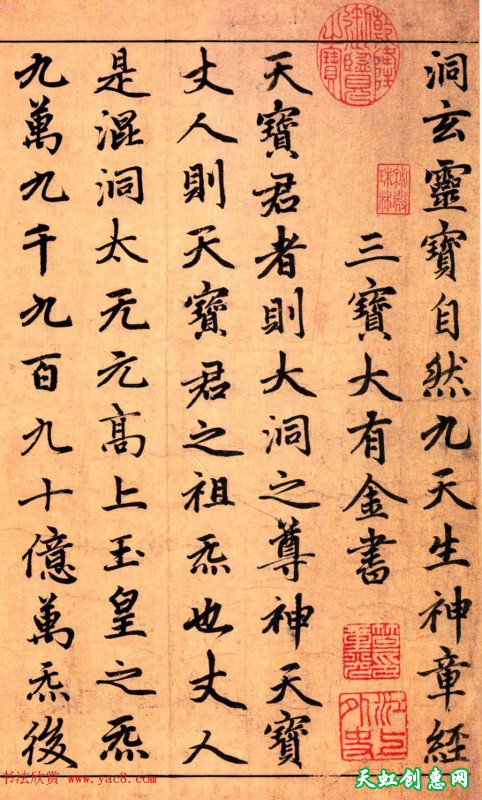 洞玄靈寶自然九天生神章經
三寶大有金書
天寶君者則大洞之尊神天寶
丈人則天寶君之祖炁也丈人
是混洞太无元高上玉皇之炁
九萬九千九百九十億萬炁後
乾隆御覽之寶
秘殿珠林
江上外史
书法欣赏 www.yac8.com
天虹创惠网